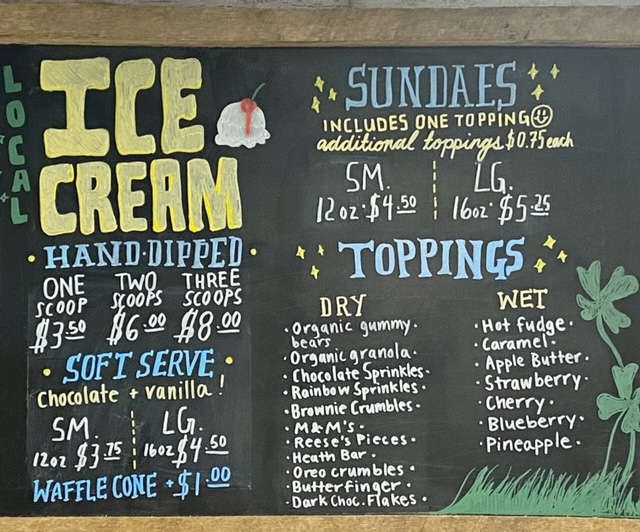 LOCAL
ICE
CREAM
HAND-DIPPED
ONE SCOOP $3.50
TWO SCOOPS $6.00
THREE SCOOPS $8.00
• SOFT SERVE •
Chocolate + vanilla!
SM. 12oz $3.75
LG. 16oz $4.50
WAFFLE CONE +$1.00
SUNDAES
INCLUDES ONE TOPPING
additional toppings $0.75 each
SM. 12oz. $4.50
LG. 16oz. $5.25
TOPPINGS
DRY
• Organic gummy •
bears
• Organic granola •
• Chocolate Sprinkles •
• Rainbow Sprinkles •
• Brownie Crumbles •
• M&M's •
• Reese's Pieces •
• Heath Bar •
• Oreo crumbles •
• Butterfinger •
• Dark Choc. Flakes •
WET
• Hot fudge •
• Caramel •
• Apple Butter •
• Strawberry •
• Cherry •
• Blueberry •
• Pineapple •